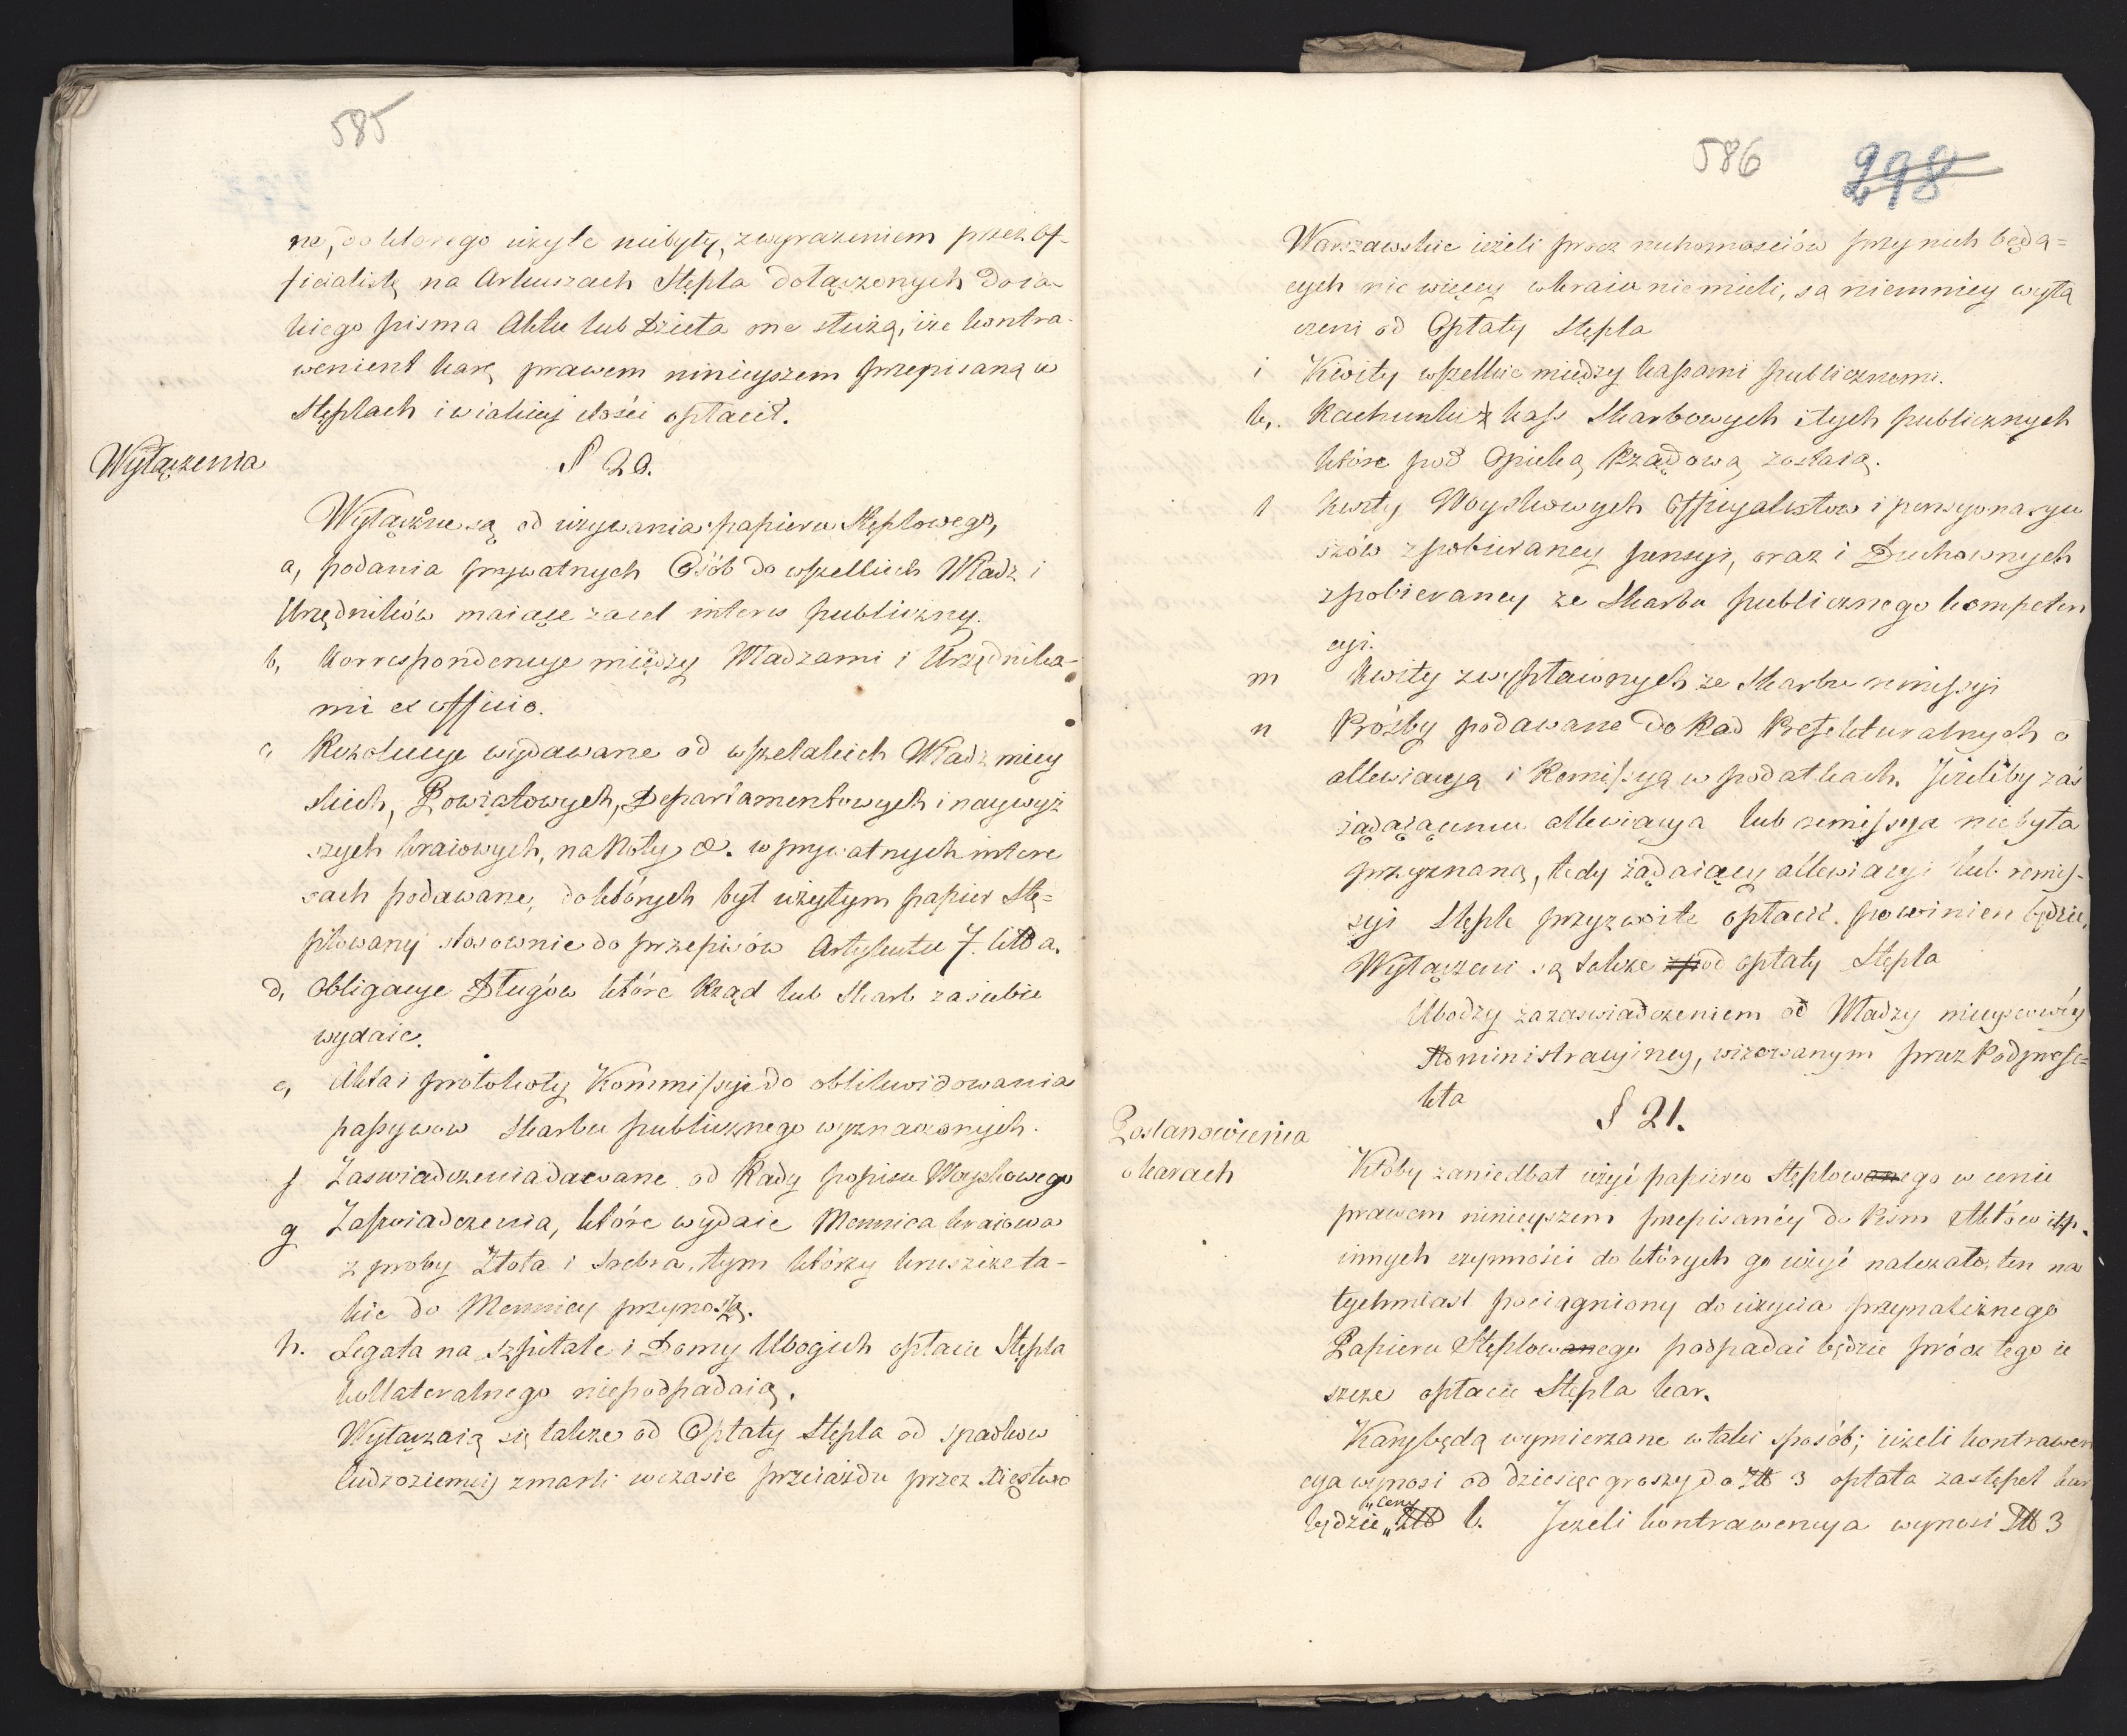 585
ne, do którego użyte niebyły, z wyrażeniem przez of-
ficialistę na Arkuszach Stępla dołączonych do ia-
kiego pisma Aktu lub Dzieła one służą, iże kontra-
wenient karę prawem ninieyszem przepisaną w
Stęplach i w iakiey ilości opłacił.
Wyłączenia
§ 20.
Wyłączone są od używania papieru Stęplowego,
a, podania prywatnych Osób do wszelkich Władz i
Urzędników maiące zacel interes publiczny.
b, Korrespondencye między Władzami i Urzędnika-
mi ex officio.
c, Rezolucye wydawane od wszelakich Władz miey
skich, Powiatowych, Departamentowych i naywyż
szych kraiowych, na Noty &. w prywatnych intere
sach podawane, do których był użytym papier Stę=
plowany stosownie do przepisów Artykułu 7. litt a.
d, Obligacye Długów które Rząd lub Skarb zasiebie
wydaie.
e, Akta i protokoły Kommissyi do oblikwidowania
passywow Skarbu publicznego wyznaczonych.
f Zaswiadczenia dawane od Rady popisu Woyskowego
g Zaświadczenia, które wydaie Mennica kraiowa
z proby Złota i Srebra, tym którzy kruszcze ta-
kie do Mennicy przynoszą.
h. Legata na szpitale i Domy Ubogich opłacie Stępla
kollateralnego niepodpadaią.
Wyłączaią się także od Opłaty Stępla od spadkow
Cudzoziemcy zmarli wczasie przeiazdu przez Xięstwo
586 298
Warszawskie ieżeli procz ruchomościów przy nich będą=
cych nic więcey w kraiu niemieli, są niemniey wyłą
czeni od Opłaty Stępla
i Kwity wszelkie między kassami publicznemi.
k,. Rachunki z kass Skarbowych i tych publicznych
które pod Opieką Rządową zostaią.
l Kwity Woyskowych Officyalistow i pensyonaryu
szów z pobieraney pensyi, oraz i Duchownych
z pobieraney ze Skarbu publicznego kompeten
cyi.
m Kwity z wypłaconych ze Skarbu remissyi
n Próźby podawane do Rad Prefekturalnych o
allewiacyą i Remissyą w podatkach. Jeżeliby zaś
żądaiącemu allewiacya lub remissya niebyła
przyznaną, tedy żądaiący allewiacyi lub remis-
syi Stęple przyzwoite opłacić powinien będzie,
Wyłączeni są także od opłaty Stępla
Ubodzy za zaswiadczeniem od Władzy mieyscowéy
Administracyiney, wizowanym przez Podprefe=
kta
§ 21.
Postanowienia
o karach
Ktoby zaniedbał użyć papieru Stęplowanego w cenie
prawem ninieyszem przepisanéy do Pism Aktów itp.
innych czynności do których go użyć należało, ten na
tychmiast pociągniony do użycia przynależnego
Papieru Stęplowanego podpadać będzie prócz tego ie
szcze opłacie Stępla kar.
Kary będą wymierzane w taki sposób; ieżeli kontrawen
cya wynosi od dziesięc groszy do Złł 3 opłata zastępel kar
będzie „ceny„ 6. Jeżeli kontrawencya wynosi Złł 3